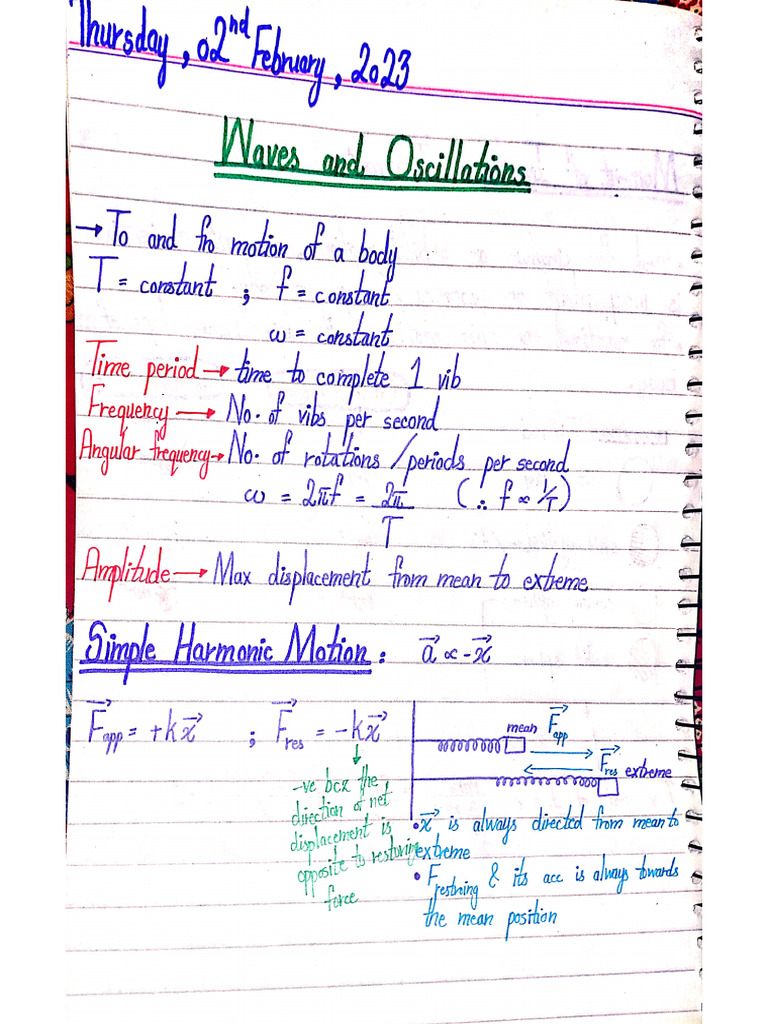 Thursday, 02nd February, 2023
Waves and Oscillations
→ To and fro motion of a body
T = constant ; f = constant
ω = constant
Time period → time to complete 1 vib
Frequency → No. of vibs per second
Angular frequency → No. of rotations/periods per second
ω = 2πf = 2π/T (∴ f ∝ 1/T)
Amplitude → Max displacement from mean to extreme
Simple Harmonic Motion : a⃗ ∝ -x⃗
F⃗app = +kx⃗ ; F⃗res = -kx⃗
-ve bcz the
direction of net
displacement is
opposite to restoring
force
mean F⃗app
F⃗res extreme
• x⃗ is always directed from mean to
extreme
• Frestring & its acc is always towards
the mean position